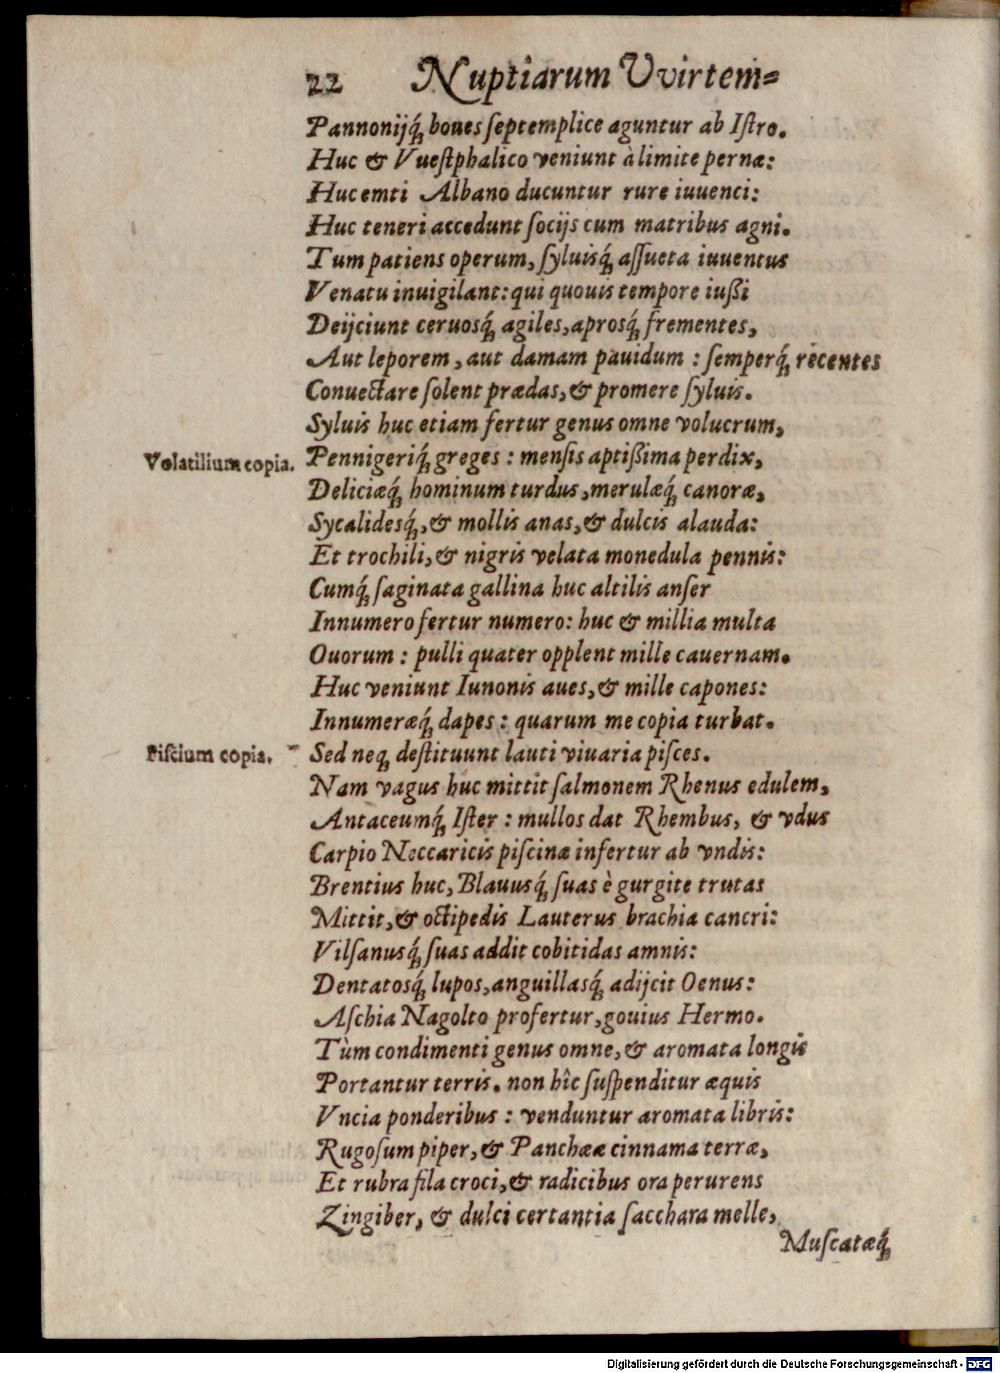 22 Nuptiarum Vvirtem=
Pannonijq́; boues septemplice aguntur ab Istro.
Huc & Vuestphalico veniunt à limite pernæ:
Huc emti Albano ducuntur rure iuuenci:
Huc teneri accedunt socijs cum matribus agni.
Tum patiens operum, syluisq́; assueta iuuentus
Venatu inuigilant: qui quouis tempore iußi
Deijciunt ceruosq́; agiles, aprosq́; frementes,
Aut leporem, aut damam pauidum: semperq́; recentes
Conuectare solent prædas, & promere syluis.
Syluis huc etiam fertur genus omne volucrum,
Volatilium copia. Pennigeriq́; greges: mensis aptißima perdix,
Deliciæq́; hominum turdus, merulæq́; canoræ,
Sycalidesq́;, & mollis anas, & dulcis alauda:
Et trochili, & nigris velata monedula pennis:
Cumq́; saginata gallina huc altilis anser
Innumero fertur numero: huc & millia multa
Ouorum: pulli quater opplent mille cauernam.
Huc veniunt Iunonis aues, & mille capones:
Innumeræq́; dapes: quarum me copia turbat.
Piscium copia. Sed neq; destituunt lauti viuaria pisces.
Nam vagus huc mittit salmonem Rhenus edulem,
Antaceumq́; Ister: mullos dat Rhembus, & vdus
Carpio Neccaricis piscinæ infertur ab vndis:
Brentius huc, Blauusq́; suas è gurgite trutas
Mittit, & octipedis Lauterus brachia cancri:
Vilsanusq́; suas addit cobitidas amnis:
Dentatosq́; lupos, anguillasq́; adijcit Oenus:
Aschia Nagolto profertur, gouius Hermo.
Tùm condimenti genus omne, & aromata longis
Portantur terris. non hîc suspenditur æquis
Vncia ponderibus: venduntur aromata libris:
Rugosum piper, & Panchææ cinnama terræ,
Et rubra fila croci, & radicibus ora perurens
Zingiber, & dulci certantia sacchara melle,
Muscatæq́;
Digitalisierung gefördert durch die Deutsche Forschungsgemeinschaft - DFG